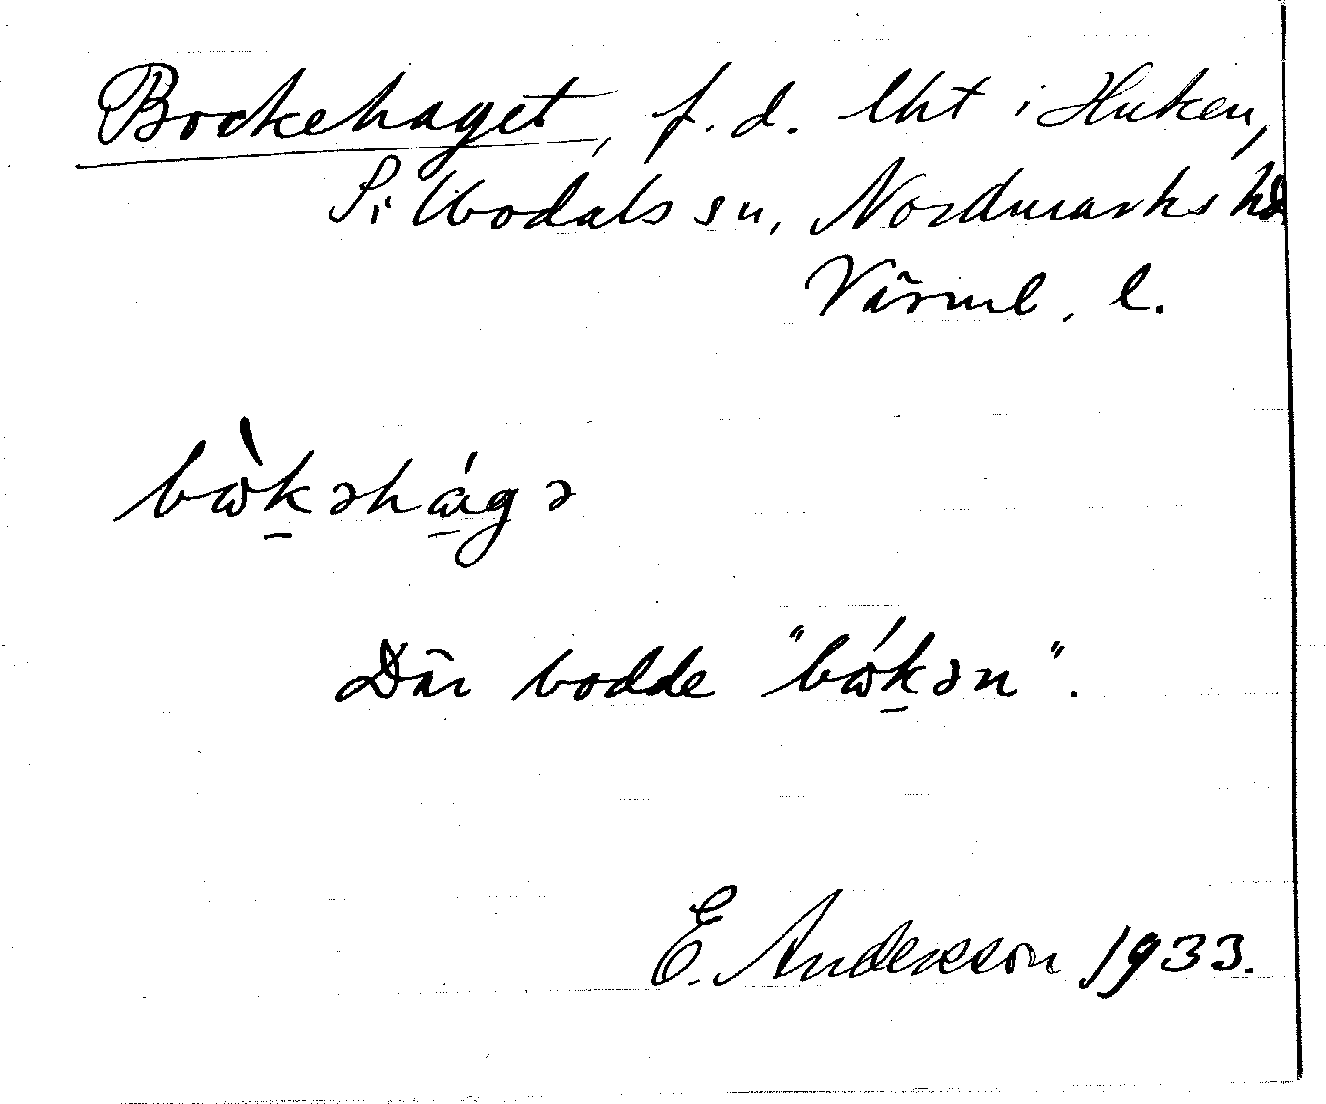 Bockehaget, f.d. lht i Huken,
Silbodals sn, Nordmarks hd
Värml. l.
bɷ̀k̠əhá̠gə
Där bodde "bɷ́k̠ən".
E. Andersson 1933.